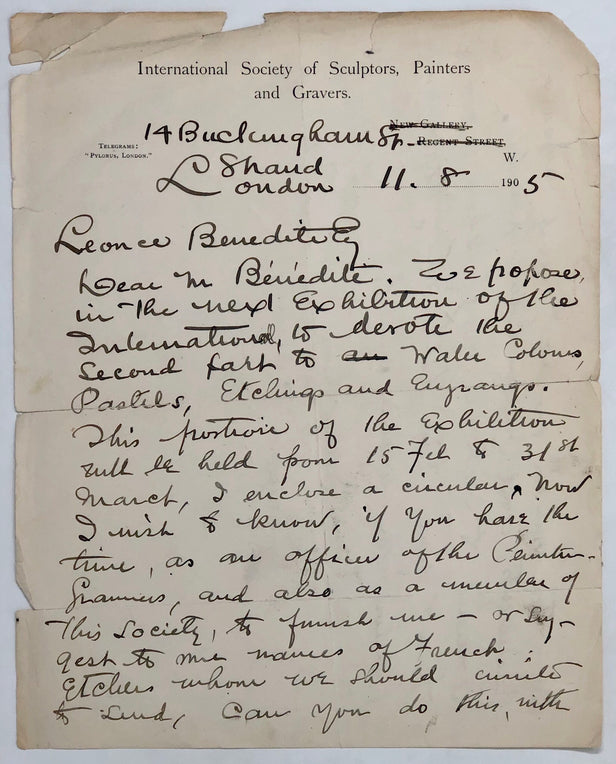 International Society of Sculptors, Painters
and Gravers.
New Gallery,
14 Buckingham St. Regent Street,
Telegrams:
"Pylorus, London."
W.
Strand
London 11. 8 1905
Leonce Benedite Esq
Dear M Bénédite. We propose,
in the next Exhibition of the
International, to devote the
Second part to an Water Colours,
Pastels, Etchings and Engravings.
This portion of the Exhibition
will be held from 15 Feb to 31st
March, I enclose a circular, Now
I wish to know, if you have the
time, as an officer of the Peintre-
Graveurs, and also as a member of
This Society, to furnish me - or sug-
gest to me names of French
Etchers whom we should invite
to send, Can you do this, with